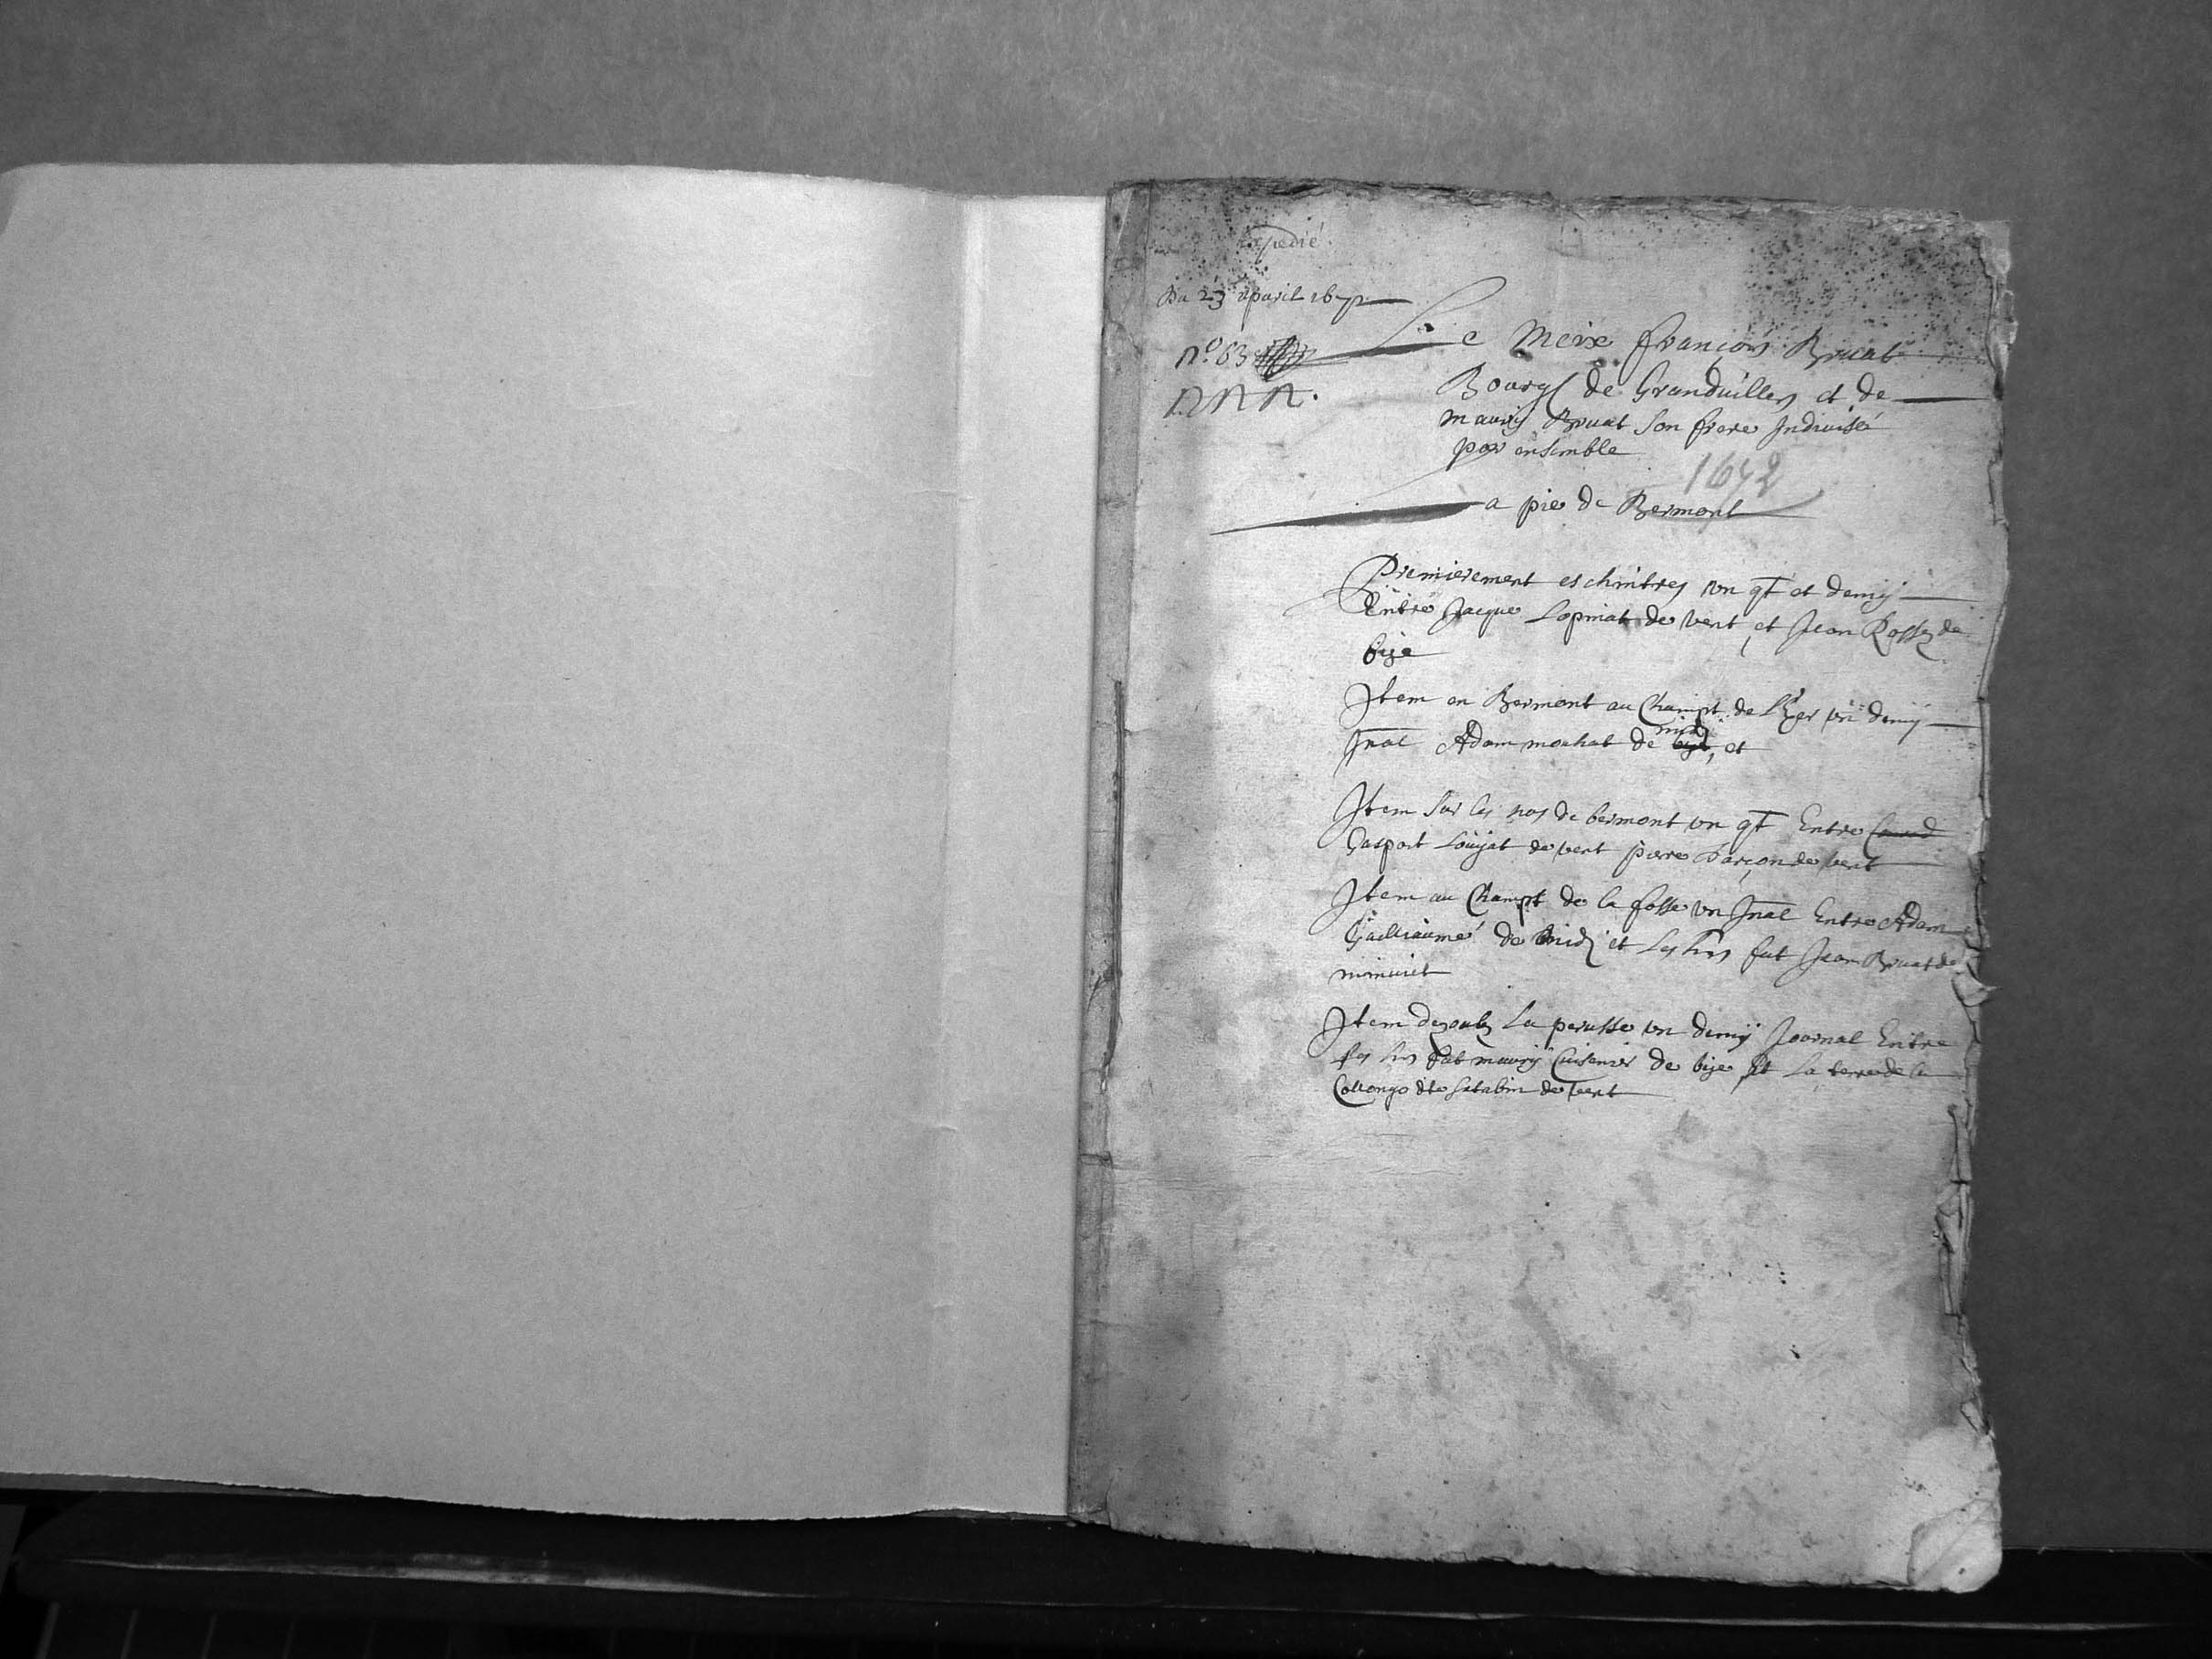 Expedié
Du 23 apvril 1672
Nº. 63
N N N.
Le Meix François Bruat
Bourg de Granduillers et de
maury Bruat Son frere Indiuisé
par ensemble
1672
La pie de Bermont
Premierement es chintres un qt et demy
Entre Jacque Lopinat de vent, et Jean Rossez de
bise
Item en Bermont au Champt de un demy
Jnal Adam mouhat de midy, et
Item Sur les nos de bermont un qt Entre
Gaspart Louyat de vent pierre Parçon de vent
Item au Champt de la fosse un Jnal Entre Adam
Guilliaume de midy et Les hers fut Jean Bruat de
minuict
Item dezoubz La perusse un demy Journal Entre
les hers fut maury Cuisenier de bise, et La terre de la
Collonge dte Satabin de vent